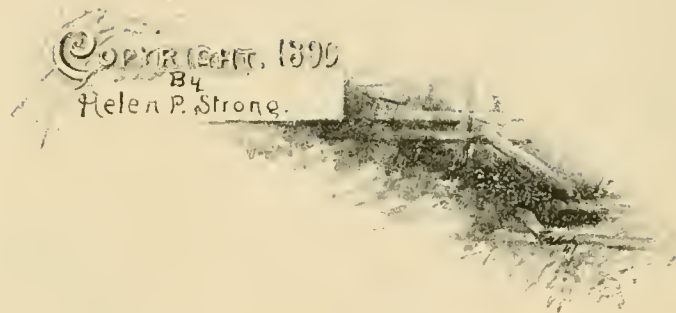 COPYRIGHT, 1890
By
Helen P. Strong.